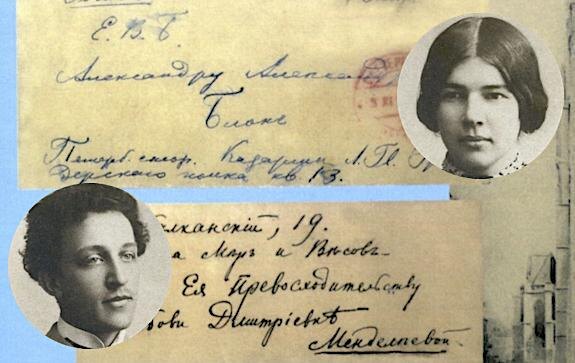 Е.В.Б.
Александру Алексан
Блокъ
Петерб. стор. Казармы Л. Гв. Гр
дерскаго полка кв. 13.
лканскій, 19.
а Мѣръ и Вѣсовъ
Ея Превосходительству
бови Дмитріевнѣ
Менделѣевой